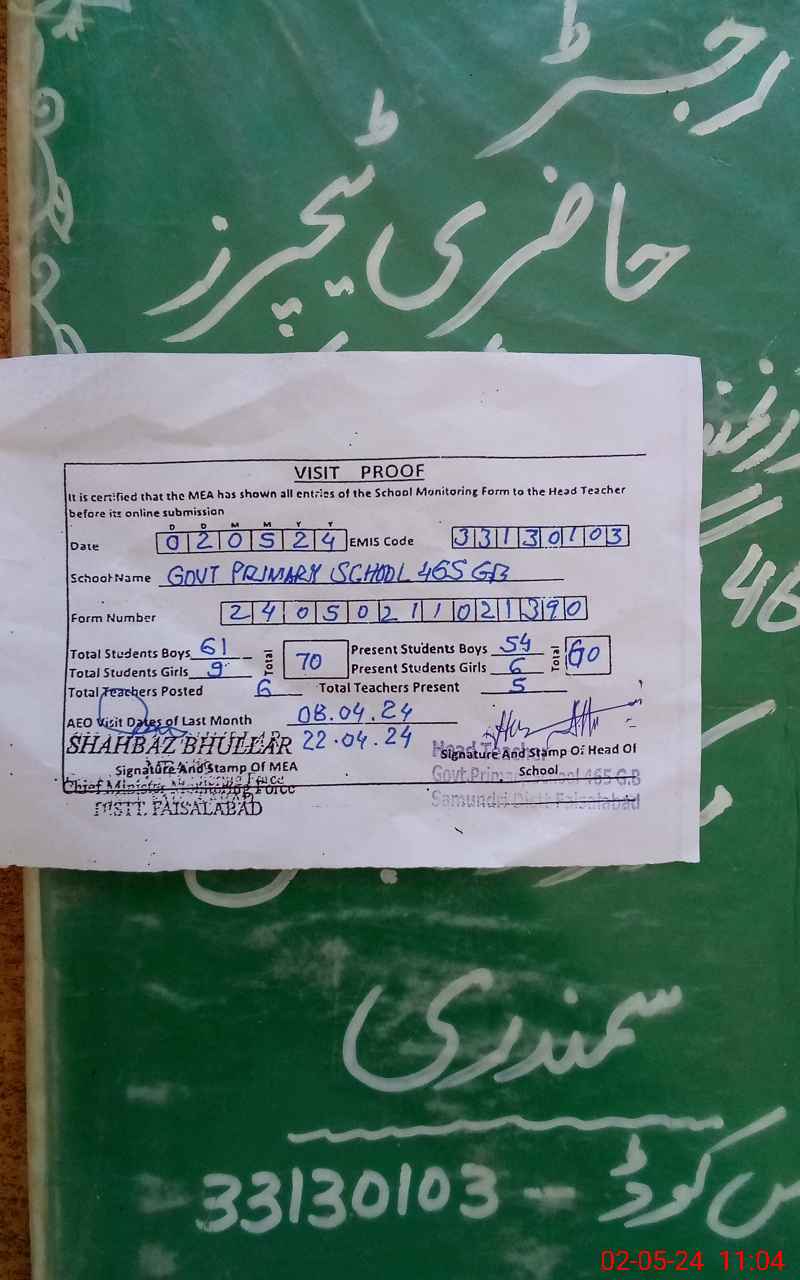 رجسٹر
حاضری ٹیچرز
46
VISIT PROOF
It is certified that the MEA has shown all entries of the School Monitoring Form to the Head Teacher
before its online submission
D D M M Y Y
Date 0 2 0 5 2 4 EMIS Code 3 3 1 3 0 1 0 3
School Name GOVT PRIMARY SCHOOL 465 GB
Form Number 2 4 0 5 0 2 1 1 0 2 1 3 9 0
Total Students Boys 61 Total 70 Present Students Boys 54 Total 60
Total Students Girls 9 Present Students Girls 6
Total Teachers Posted 6 Total Teachers Present 5
AEO Visit Dates of Last Month 08.04.24
SHAHBAZ BHULLAR 22.04.24
Head Teacher
Signature And Stamp Of Head Of
School
Signature And Stamp Of MEA
Govt.Primary School 465 G.B
Chief Minister Monitoring Force
Samundri Distt Faisalabad
DISTT. FAISALABAD
سمندری
س کوڈ - 33130103
02-05-24 11:04